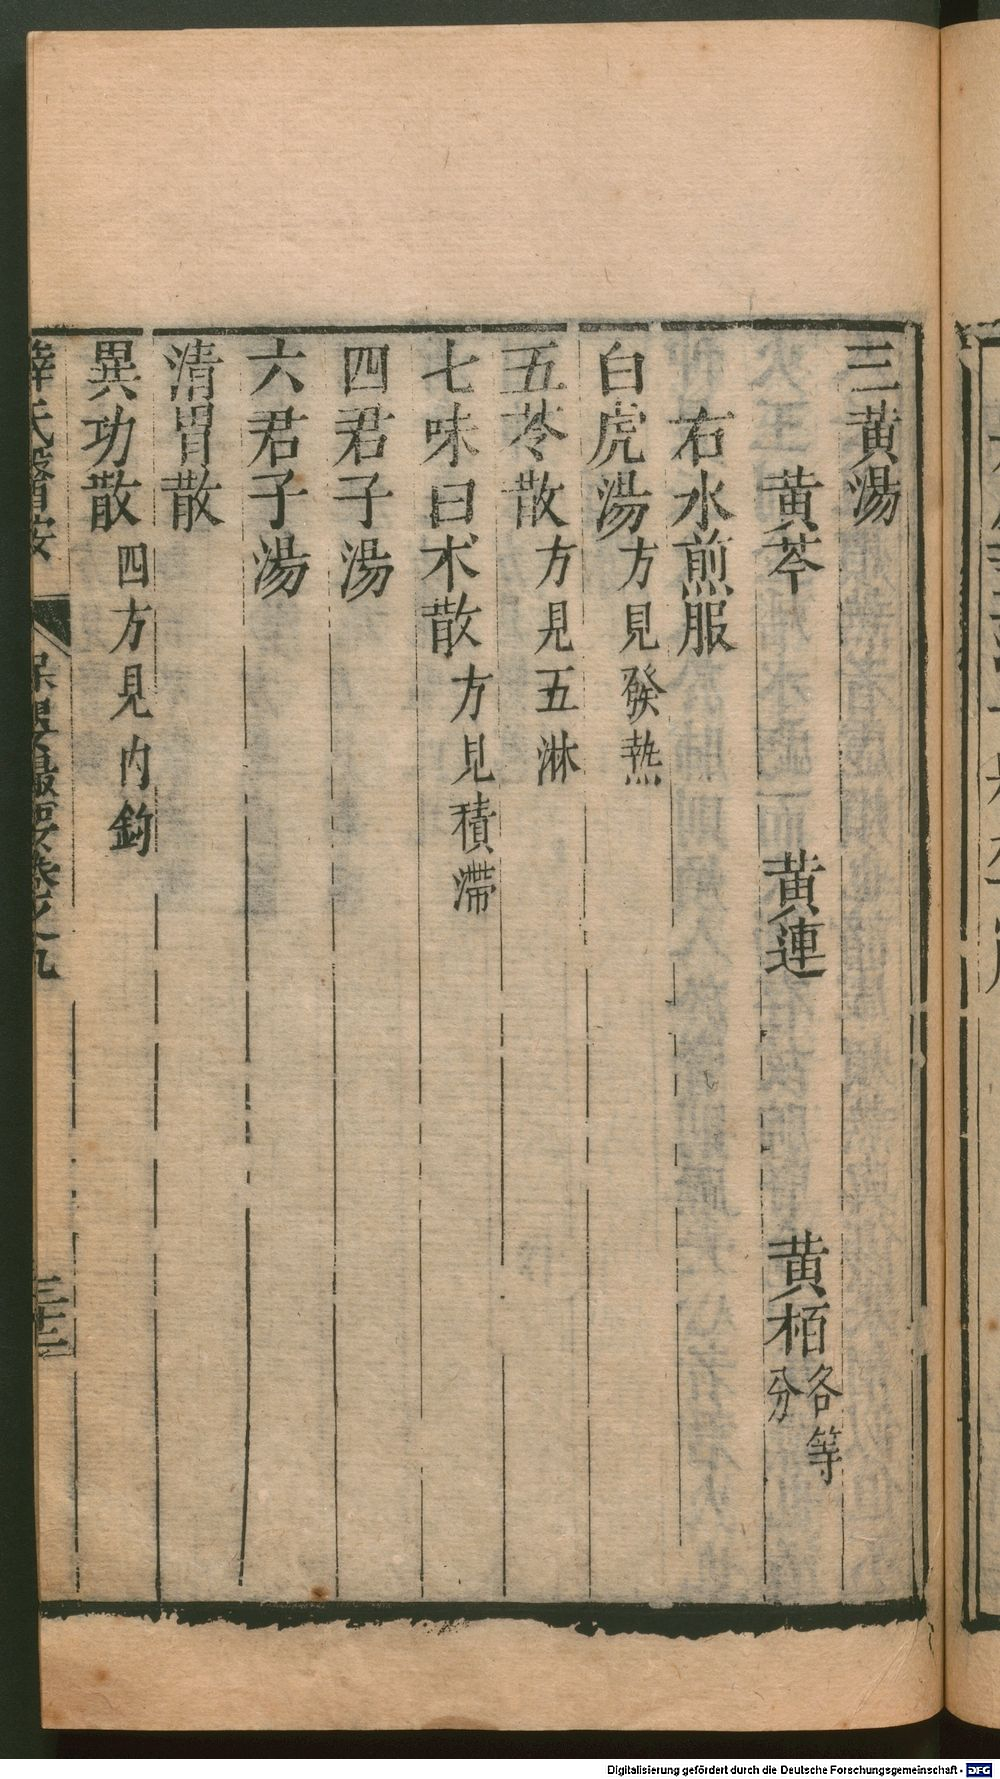 三黃湯
黃芩 黃連 黃栢各等分
右水煎服
白虎湯方見發熱
五苓散方見五淋
七味白术散方見積滯
四君子湯
六君子湯
清胃散
異功散四方見內鈎
薛氏醫按 保嬰撮要卷之九 三十二
Digitalisierung gefördert durch die Deutsche Forschungsgemeinschaft - DFG